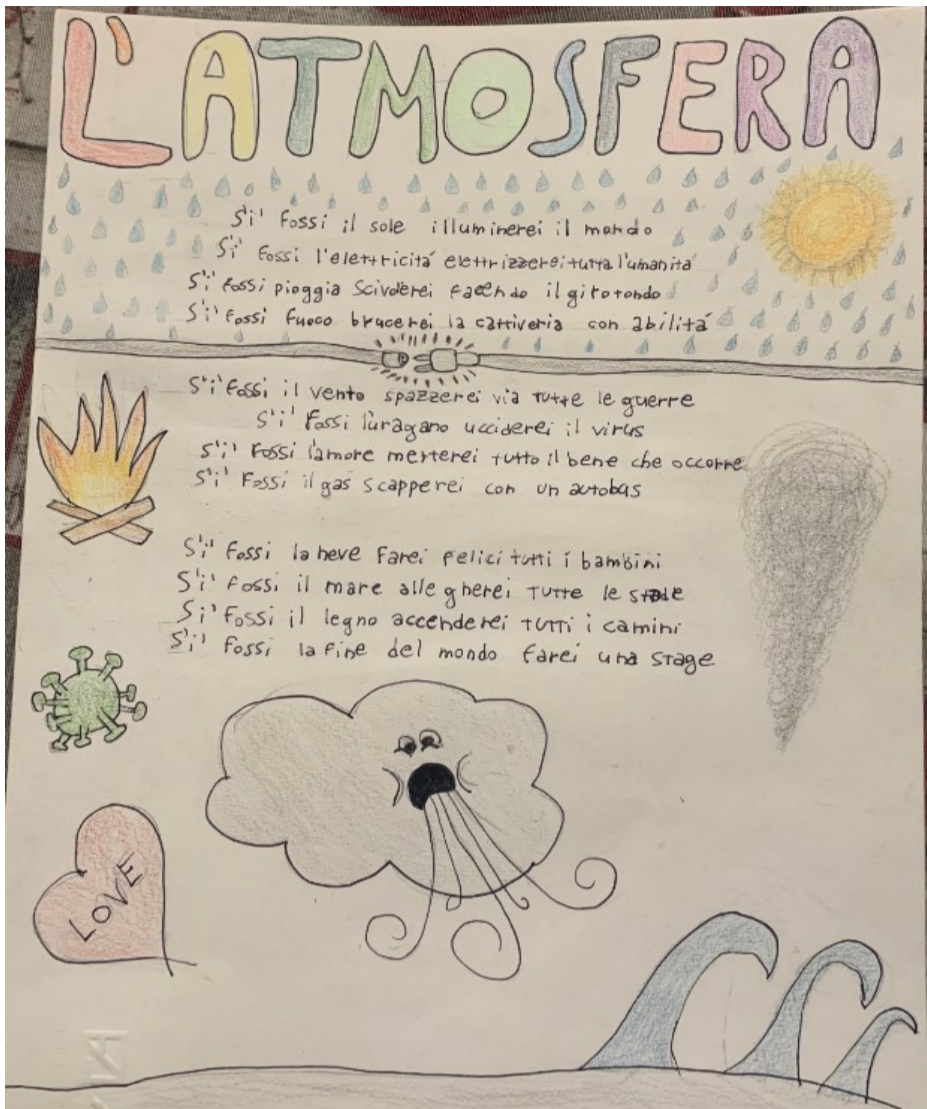 L'ATMOSFERA
S'i' fossi il sole illuminerei il mondo
S'i' fossi l'elettricitá elettrizzerei tutta l'umanitá
S'i' fossi pioggia scivolerei facendo il girotondo
S'i' fossi fuoco brucerei la cattiveria con abilitá
S'i' fossi il vento spazzerei via tutte le guerre
S'i' fossi l'uragano ucciderei il virus
S'i' fossi l'amore metterei tutto il bene che occorre
S'i' fossi il gas scapperei con un autobus
S'i' fossi la neve farei felici tutti i bambini
S'i' fossi il mare allegherei tutte le
S'i' fossi il legno accenderei tutti i camini
S'i' fossi la fine del mondo farei una stage
LOVE